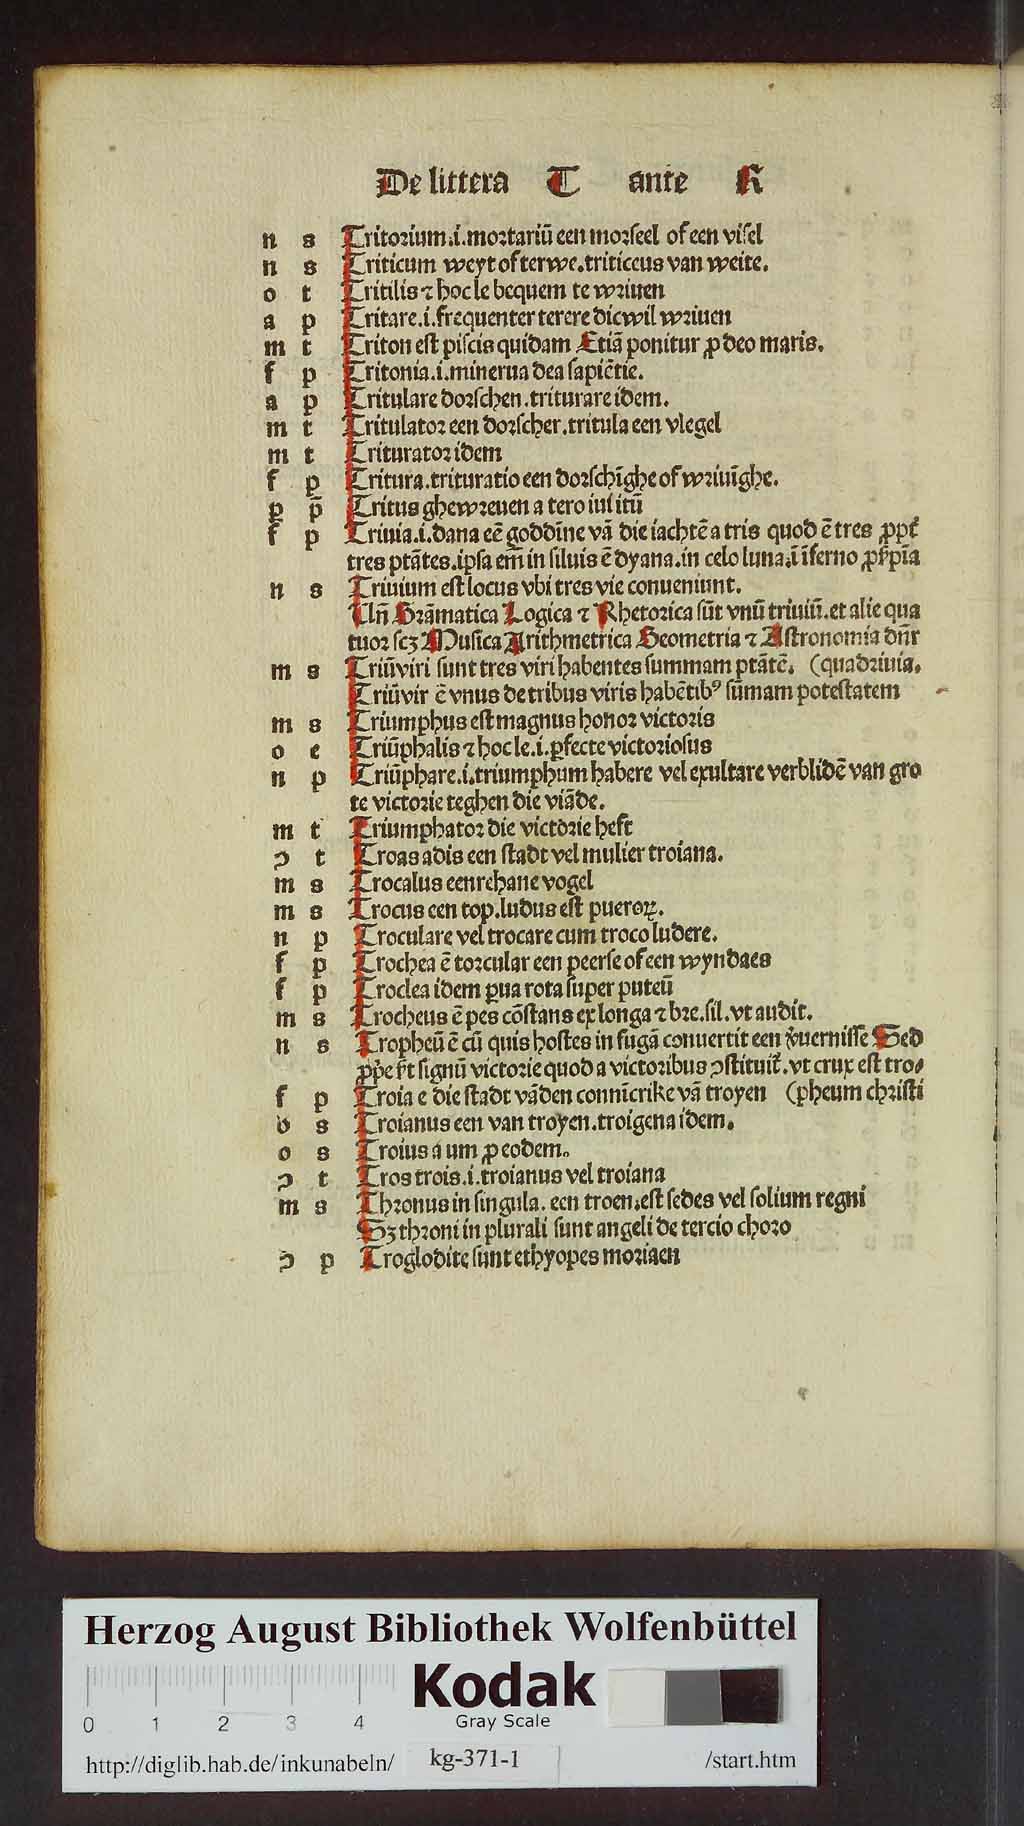 De littera T ante R
n s Tritorium.i.mortariū een morseel of een visel
n s Triticum weyt of terwe.triticeus van weite.
o t Tritilis ⁊ hoc le bequem te wriuen
a p Tritare.i.frequenter terere dicwil wriuen
m t Triton est piscis quidam Etiā ponitur ꝓ deo maris.
f p Tritonia.i.minerua dea sapiētie.
a p Tritulare dorschen.triturare idem.
m t Tritulator een dorscher.tritula een vlegel
m t Triturator idem
f p Tritura.trituratio een dorschīghe of wriuīghe.
p p̄ Tritus ghewreuen a tero iui itū
f p Triuia.i.dana eē goddīne vā die iachtē a tris quod ē tres ꝓpt̄
tres ptātes.ipsa em̄ in siluis ē dyana.in celo luna.ī īferno ꝓs̄pīa
n s Triuium est locus vbi tres vie conueniunt.
Un̄ Grāmatica Logica ⁊ Rhetorica sūt vnū triuiū.et alie qua
tuor scꝫ Musica Arithmetrica Geometria ⁊ Astronomia dn̄r
m s Triūviri sunt tres viri habentes summam ptātē. (quadriuia.
Triūvir ē vnus de tribus viris habētibꝰ sūmam potestatem
m s Triumphus est magnus honor victoris
o e Triūphalis ⁊ hoc le.i.ꝑfecte victoriosus
n p Triūphare.i.triumphum habere vel exultare verblidē van gro
te victorie teghen die viāde.
m t Triumphator die victorie heft
ↄ t Troas adis een stadt vel mulier troiana.
m s Trocalus een rehane vogel
m s Trocus een top.ludus est pueroꝝ.
n p Troculare vel trocare cum troco ludere.
f p Trochea ē torcular een peerse of een wyndaes
f p Troclea idem ꝑua rota super puteū
m s Trocheus ē pes cōstans ex longa ⁊ bre.sil.vt audit.
n s Tropheū ē cū quis hostes in fugā conuertit een v̄uernisse Sed
ꝓp̄e est signū victorie quod a victoribus ↄstituit̄.vt crux est tro-
f p Troia e die stadt vāden connīcrike vā troyen (pheum christi
o s Troianus een van troyen.troigena idem.
o s Troius a um ꝓ eodem.
ↄ t Tros trois.i.troianus vel troiana
m s Thronus in singula. een troen.est sedes vel solium regni
Sꝫ throni in plurali sunt angeli de tercio choro
ↄ p Troglodite sunt ethyopes moriaen
Herzog August Bibliothek Wolfenbüttel
Kodak
Gray Scale
0 1 2 3 4
http://diglib.hab.de/inkunabeln/ kg-371-1 /start.htm